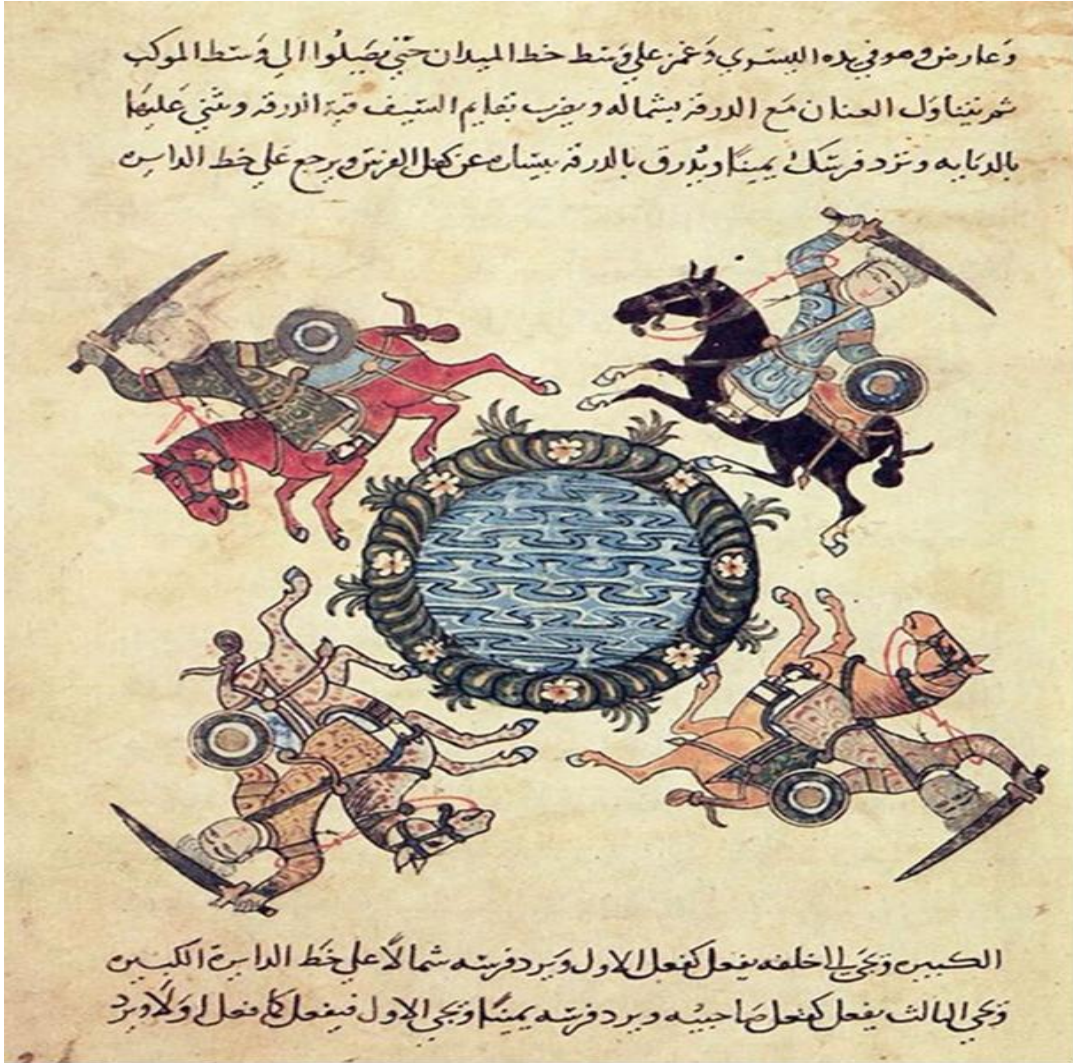 وعارض وهو في يده اليسري وغمز علي وسط خط الميدان حتي يصيلوا الي وسط الموكب
ثم يتناول العنان مع الدرقة بشماله ويضرب بقايم السيف قبة الدرقة ويثني عليها
بالدبابه وترد فرسك يمينا ويدرق بالدرقة بيساره عن كفل الفرس ويرجع علي خط الدايره
الكبيره ويجي خلفه يفعل كفعل الاول ويرد فرسه شمالا علي خط الدايرة الكبيره
ويجي الثالث يفعل كفعل صاحبيه ويرد فرسه يمينا ويجي الاول فيفعل كما فعل اولا ويرد